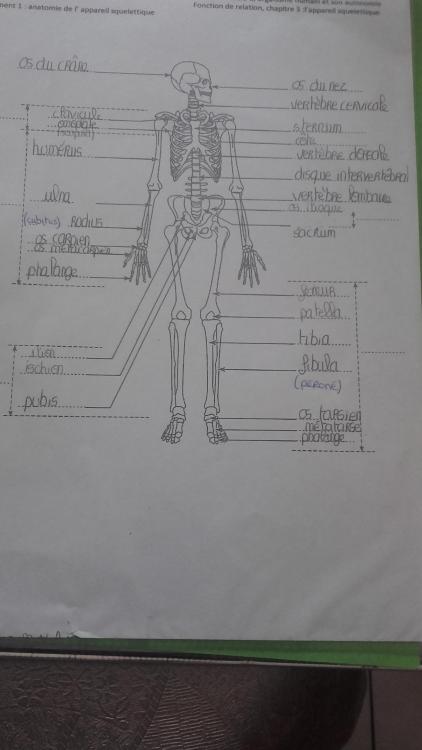 ment 1 : anatomie de l' appareil squelettique
humain et son autonomie
Fonction de relation, chapitre 3 :l'appareil squelettique
os du crâne
os du nez
vertèbre cervicale
clavicule
omoplate
sternum
côte
humérus
vertèbre dorsale
disque intervertébral
ulna
vertèbre lombaire
os iliaque
(cubitus) Radius
sacrum
os carpien
os métacarpien
phalange
fémur
patella
tibia
ilion
ischion
fibula
(péroné)
pubis
os tarsien
métatarse
phalange